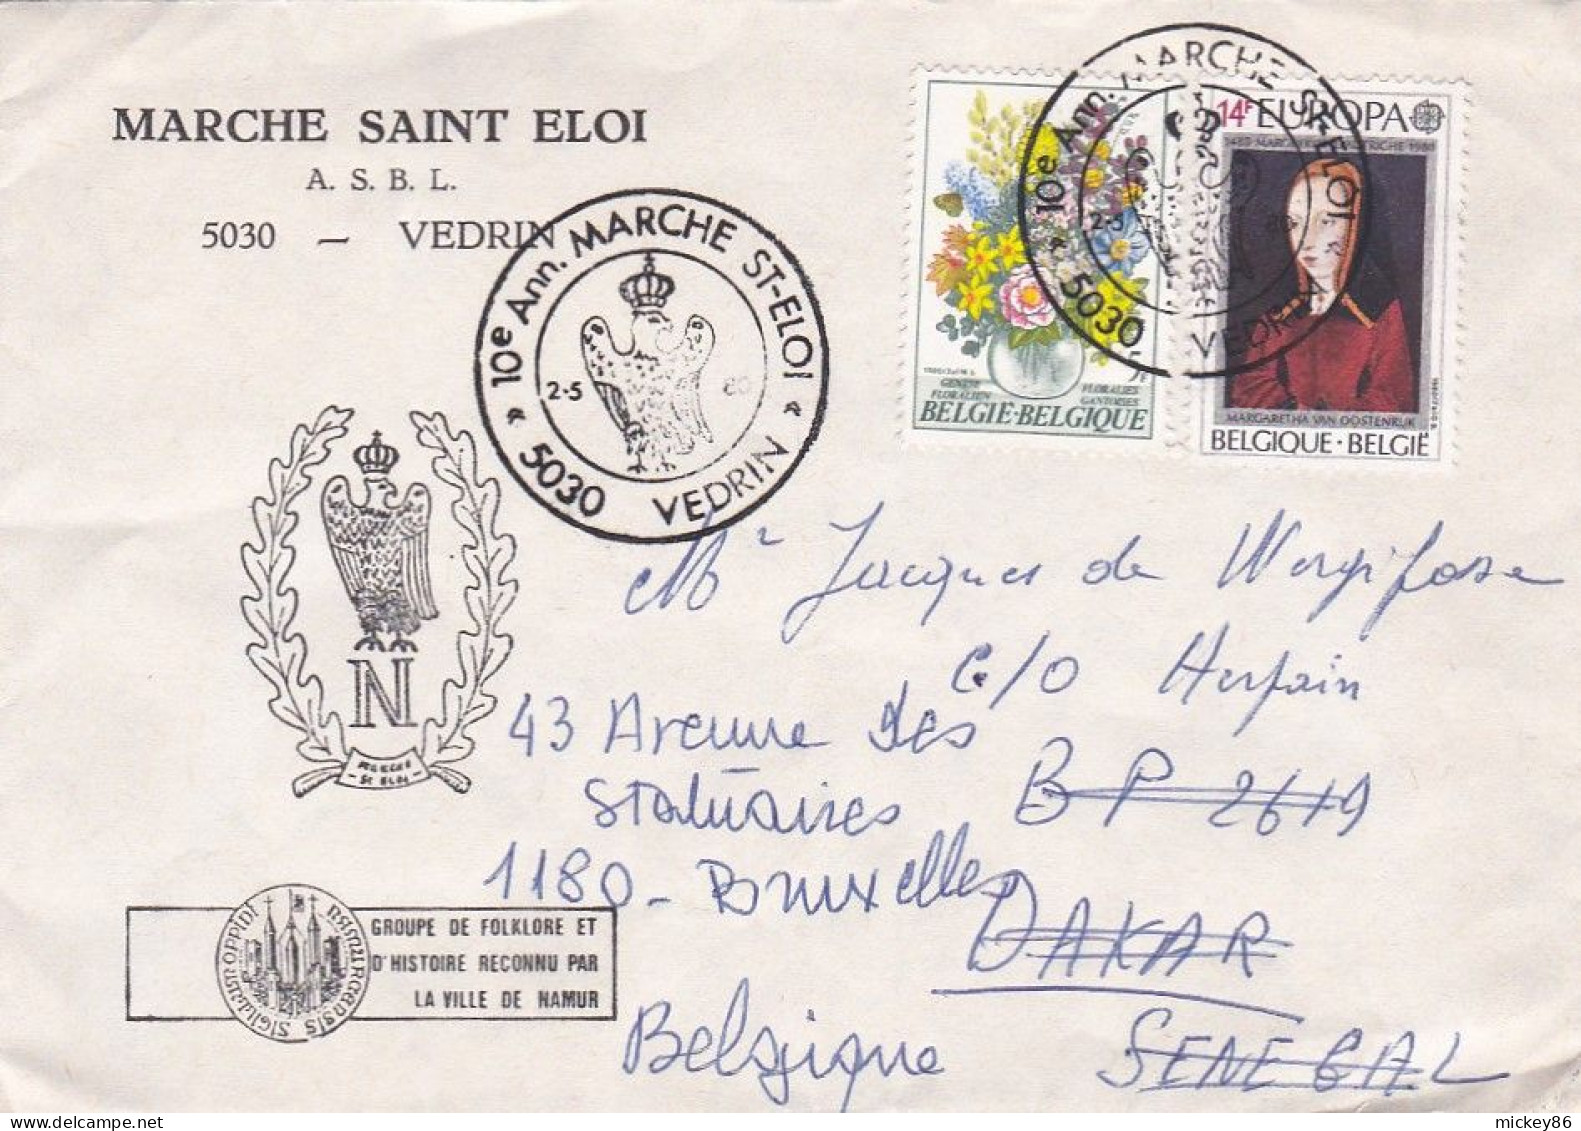 MARCHE SAINT ELOI
A. S. B. L.
5030 — VEDRIN
10e Ann. MARCHE ST-ELOI
2-5 80
« 5030 VEDRIN «
10e Ann. MARCHE ST-ELOI
2-5 80
« 5030 VEDRIN «
5F
GENTSE FLORALIËN
FLORALIES GANTOISES
BELGIE·BELGIQUE
14F EUROPA
MARGARETHA VAN OOSTENRIJK
BELGIQUE·BELGIË
N
MARCHE
- ST ELOI -
GROUPE DE FOLKLORE ET
D'HISTOIRE RECONNU PAR
LA VILLE DE NAMUR
Mr Jacques de Wergifosse
c/o Hurpain
43 Avenue des
Statuaires
BP 2619
1180 - Bruxelles
DAKAR
Belgique
SENEGAL
mickey86